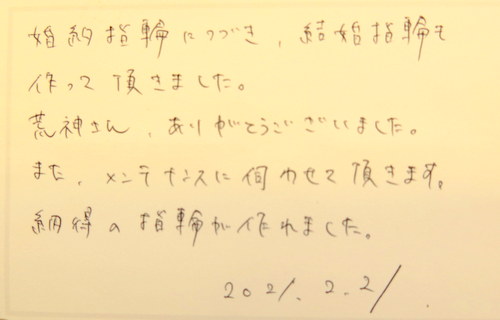 婚約指輪につづき、結婚指輪も
作って頂きました。
荒神さん、ありがとうございました。
また、メンテナンスに伺わせて頂きます。
納得の指輪が作れました。
2021.2.21.